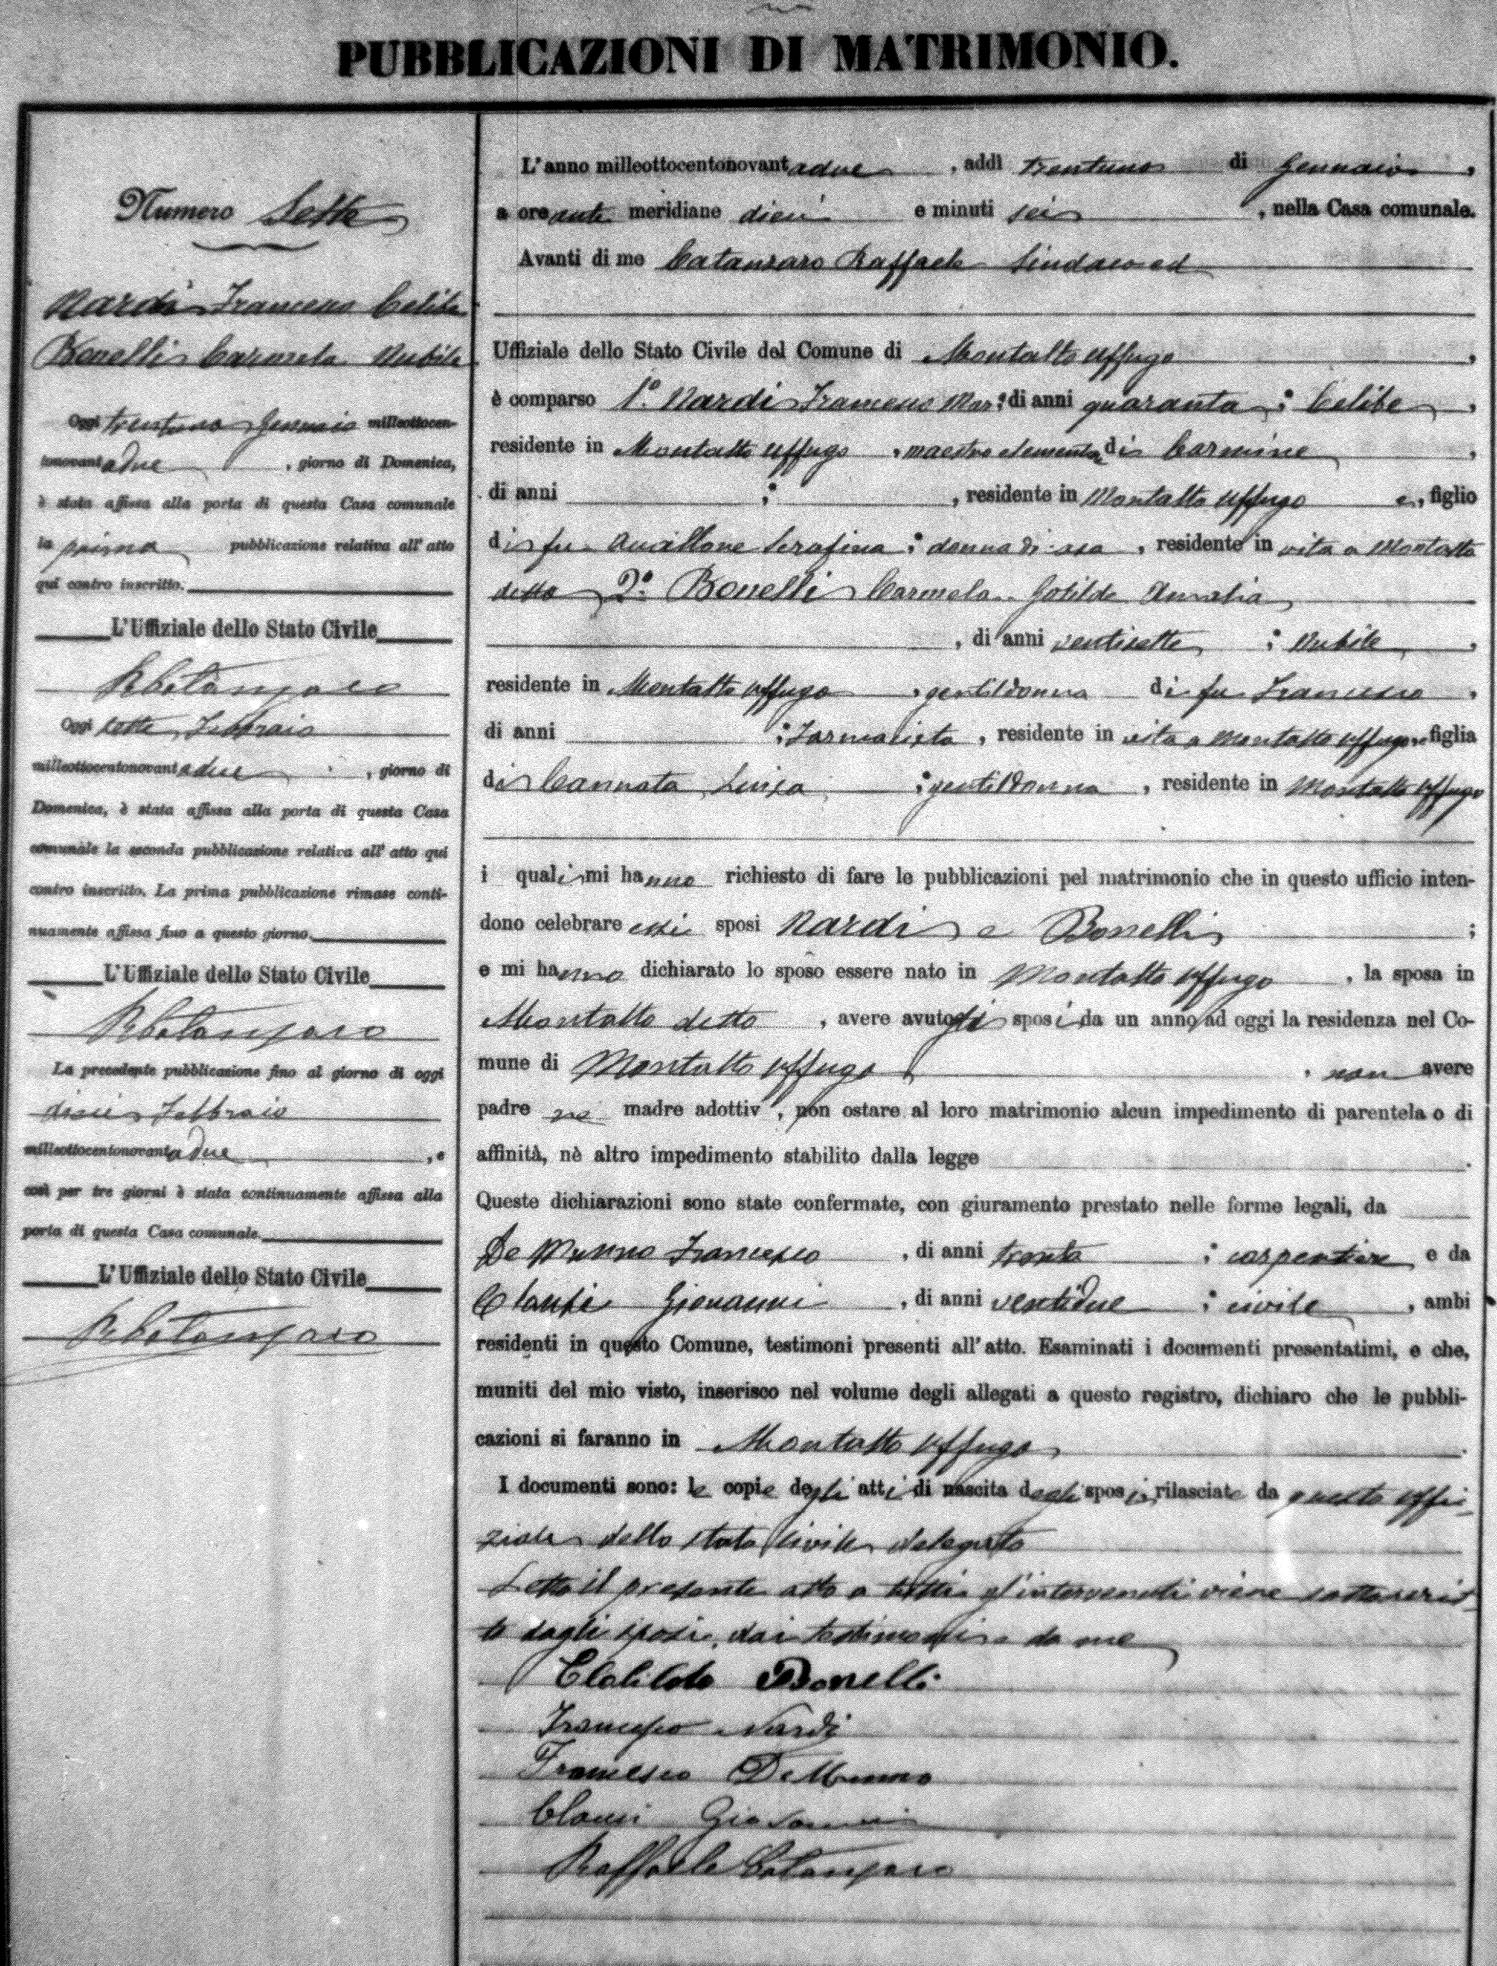 PUBBLICAZIONI DI MATRIMONIO.
Numero Sette
Nardi Francesco Celibe
Bonelli Carmela Nubile
Oggi trentuno Gennaio milleottocen-
tonovantadue, giorno di Domenica,
è stata affissa alla porta di questa Casa comunale
la prima pubblicazione relativa all' atto
qui contro inscritto.
L'Uffiziale dello Stato Civile
RCatanzaro
Oggi sette Febbraio
milleottocentonovantadue, giorno di
Domenica, è stata affissa alla porta di questa Casa
comunale la seconda pubblicazione relativa all' atto qui
contro inscritto. La prima pubblicazione rimase conti-
nuamente affissa fino a questo giorno.
L'Uffiziale dello Stato Civile
RCatanzaro
La precedente pubblicazione fino al giorno di oggi
dieci Febbraio
milleottocentonovantadue, e
così per tre giorni è stata continuamente affissa alla
porta di questa Casa comunale.
L'Uffiziale dello Stato Civile
RCatanzaro
L'anno milleottocentonovantadue, addì trentuno di Gennaio,
a ore anti meridiane dieci e minuti sei, nella Casa comunale.
Avanti di me Catanzaro Raffaele Sindaco ed
Uffiziale dello Stato Civile del Comune di Montalto Uffugo,
è comparso 1.º Nardi Francesco Mar.: di anni quaranta; Celibe,
residente in Montalto Uffugo, maestro elementare di Carmine,
di anni ; , residente in Montalto Uffugo e, figlio
di fu Avallone Serafina; donna di casa, residente in vita a Montalto
detto 2.º Bonelli Carmela Gotilde Amalia
, di anni ventisette; Nubile,
residente in Montalto Uffugo, gentildonna di fu Francesco,
di anni ; Farmacista, residente in vita a Montalto Uffugo e figlia
di Cannata Luisa; gentildonna, residente in Montalto Uffugo
i quali mi hanno richiesto di fare le pubblicazioni pel matrimonio che in questo ufficio inten-
dono celebrare essi sposi Nardi e Bonelli;
e mi hanno dichiarato lo sposo essere nato in Montalto Uffugo, la sposa in
Montalto detto, avere avuto gli sposi da un anno ad oggi la residenza nel Co-
mune di Montalto Uffugo, non avere
padre nè madre adottiv', non ostare al loro matrimonio alcun impedimento di parentela o di
affinità, nè altro impedimento stabilito dalla legge.
Queste dichiarazioni sono state confermate, con giuramento prestato nelle forme legali, da
De Munno Francesco, di anni trenta; carpentiere e da
Clausi Giovanni, di anni ventidue; civile, ambi
residenti in questo Comune, testimoni presenti all' atto. Esaminati i documenti presentatimi, e che,
muniti del mio visto, inserisco nel volume degli allegati a questo registro, dichiaro che le pubbli-
cazioni si faranno in Montalto Uffugo.
I documenti sono: le copie degli atti di nascita degli sposi, rilasciate da questo uffi-
ziale dello stato Civile delegato
Letto il presente atto a tutti gl'intervenuti viene sottoscrit-
to dagli sposi, dai testimoni e da me
Clotilde Bonelli
Francesco Nardi
Francesco De Munno
Clausi Giovanni
Raffaele Catanzaro